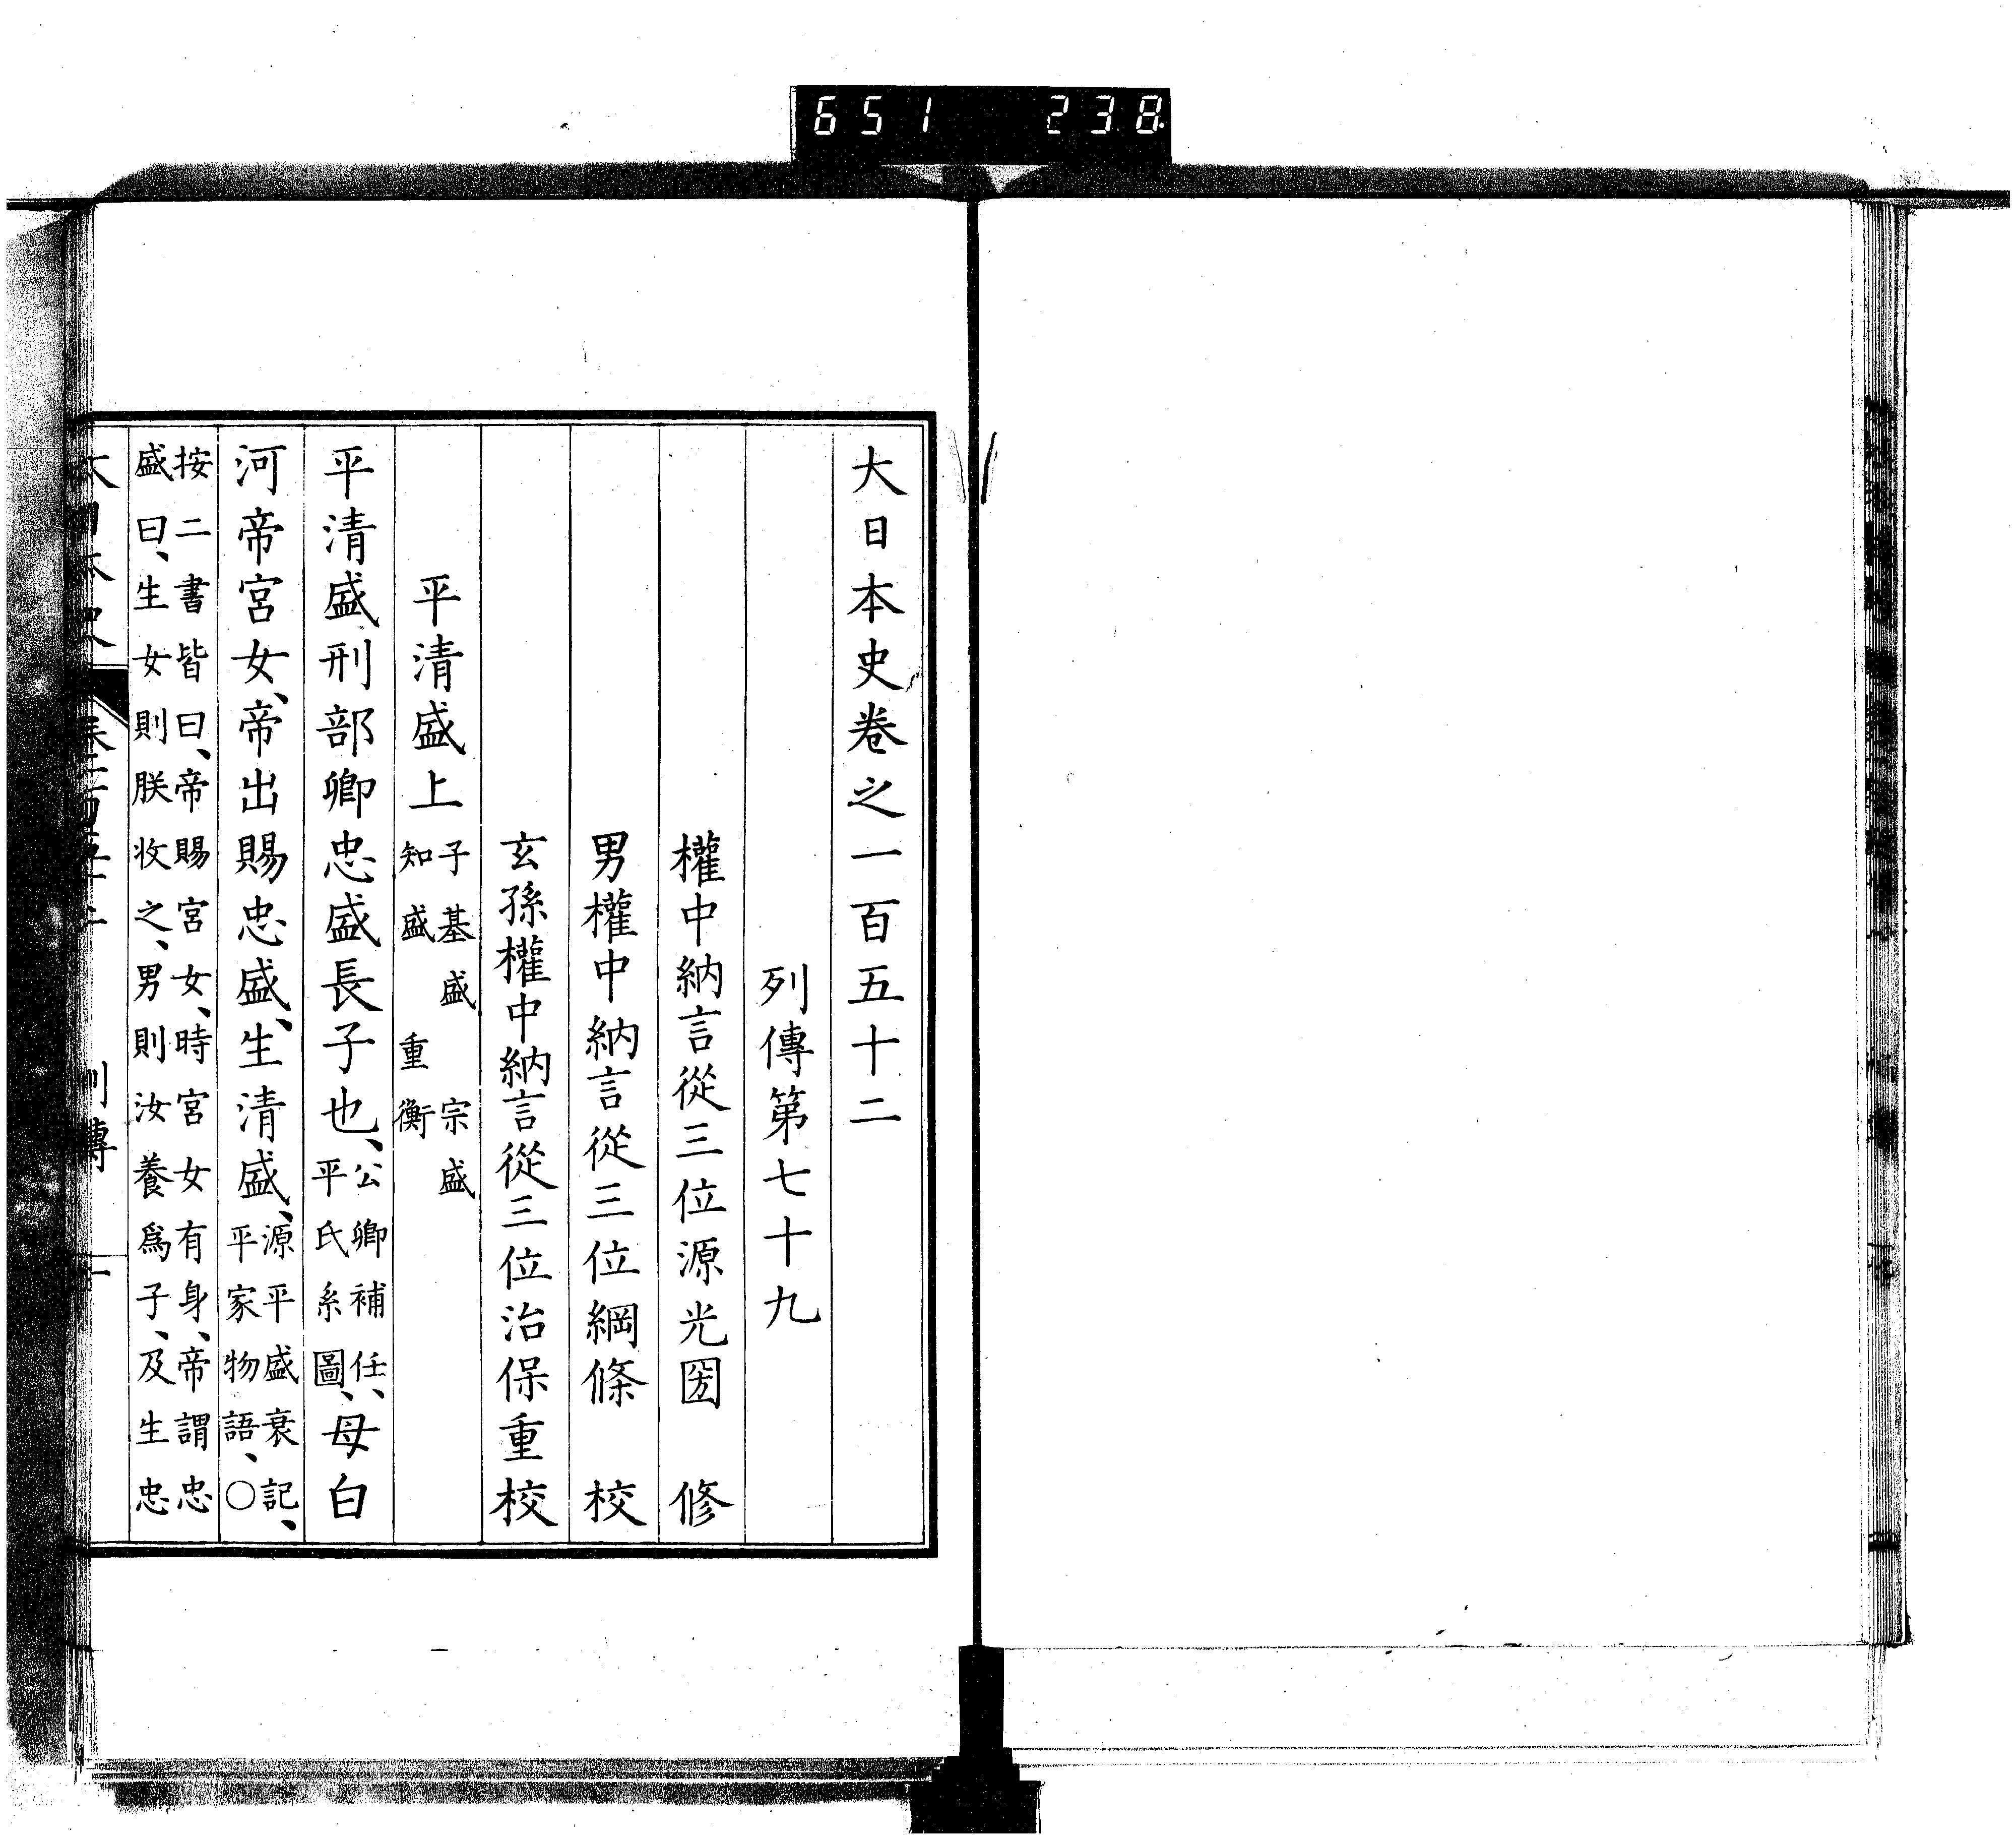 651 238
大日本史卷之一百五十二
列傳第七十九
權中納言從三位源光圀 修
男權中納言從三位綱條 校
玄孫權中納言從三位治保重校
平清盛上
子基盛 宗盛
知盛 重衡
平清盛、刑部卿忠盛長子也、
公卿補任、
平氏系圖、
母白
河帝宮女、帝出賜忠盛、生清盛、
源平盛衰記、
平家物語、○
按二書皆曰、帝賜宮女、時宮女有身、帝謂忠
盛曰、生女則朕收之、男則汝養爲子、及生忠